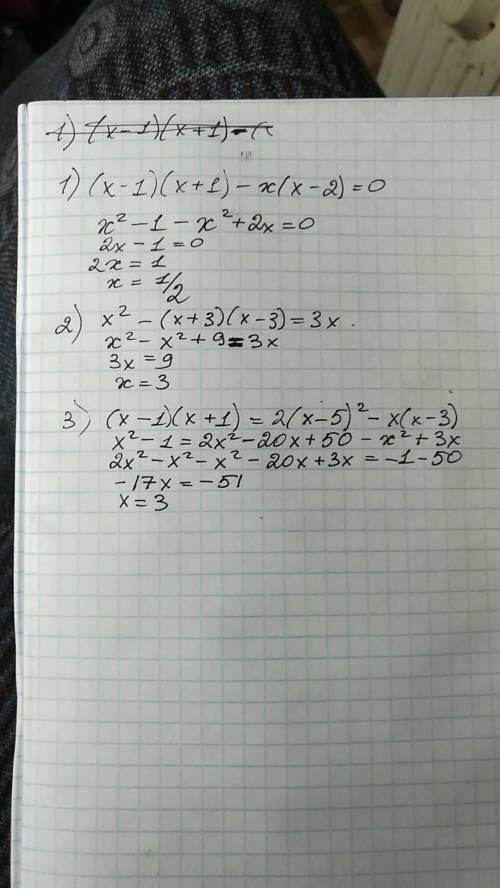 1) (x-1)(x+1)-(x
1) (x-1)(x+1)-x(x-2)=0
x²-1-x²+2x=0
2x-1=0
2x=1
x=1/2
2) x²-(x+3)(x-3)=3x.
x²-x²+9=3x
3x=9
x=3
3) (x-1)(x+1)=2(x-5)²-x(x-3)
x²-1=2x²-20x+50-x²+3x
2x²-x²-x²-20x+3x=-1-50
-17x=-51
x=3